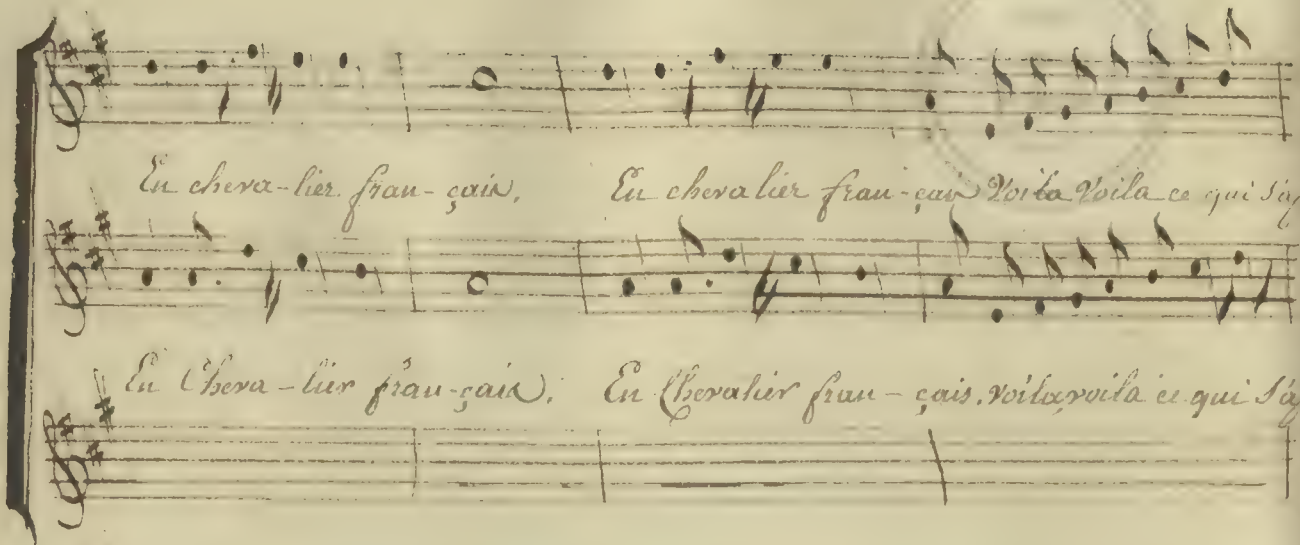 En cheva-lier fran-çais. En chevalier fran-çais Voila Voila ce qui s'ap
En Cheva-lier fran-çais. En Chevalier fran-çais. voila, voila ce qui s'ap